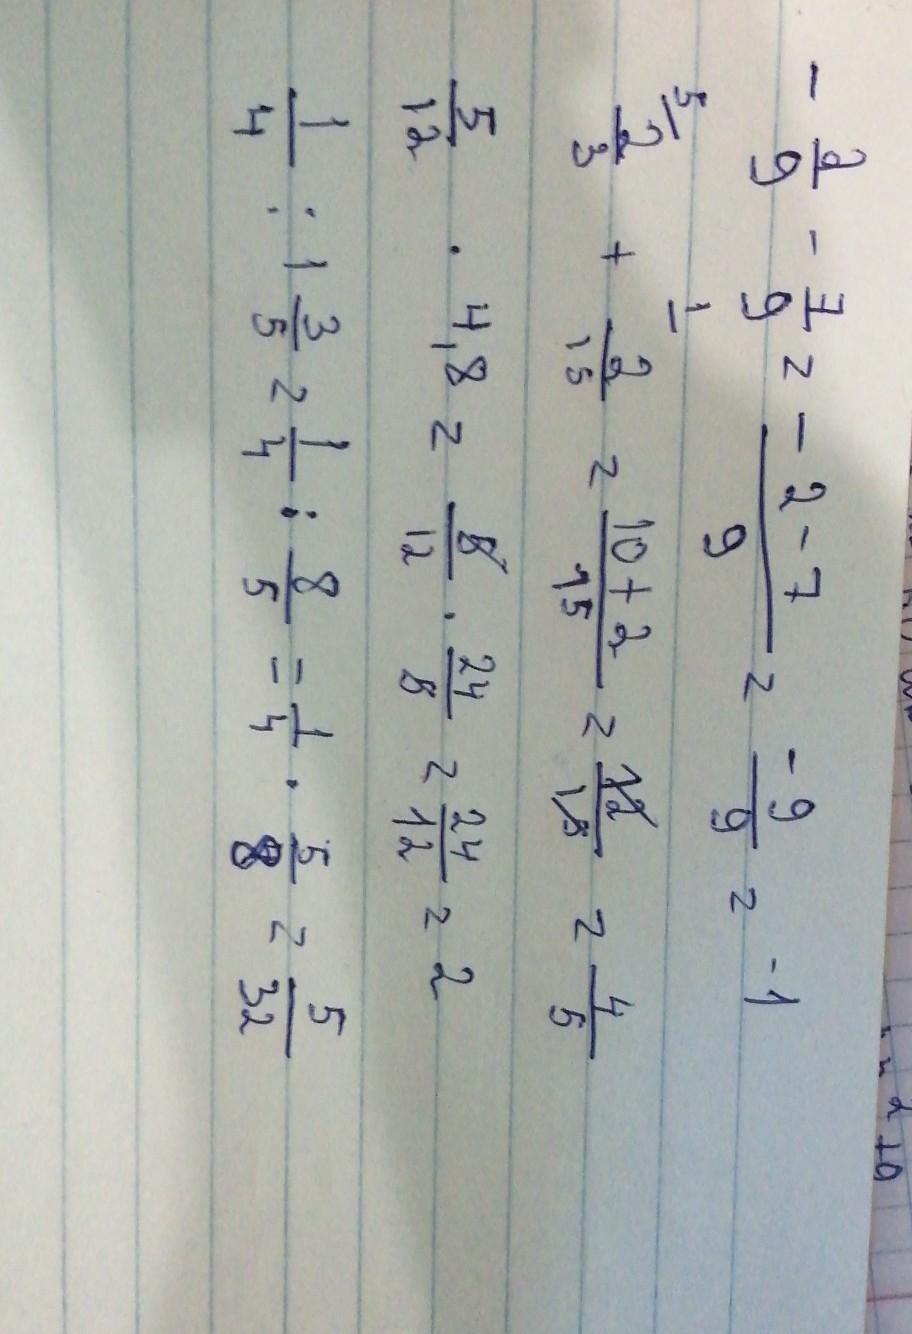 - 2/9 - 7/9 = - 2-7/9 = -9/9 = -1
5/ 2/3 + 1/ 2/15 = 10+2/15 = 12/15 = 4/5
5/12 · 4,8 = 5/12 · 24/5 = 24/12 = 2
1/4 : 1 3/5 = 1/4 : 8/5 = 1/4 · 5/8 = 5/32